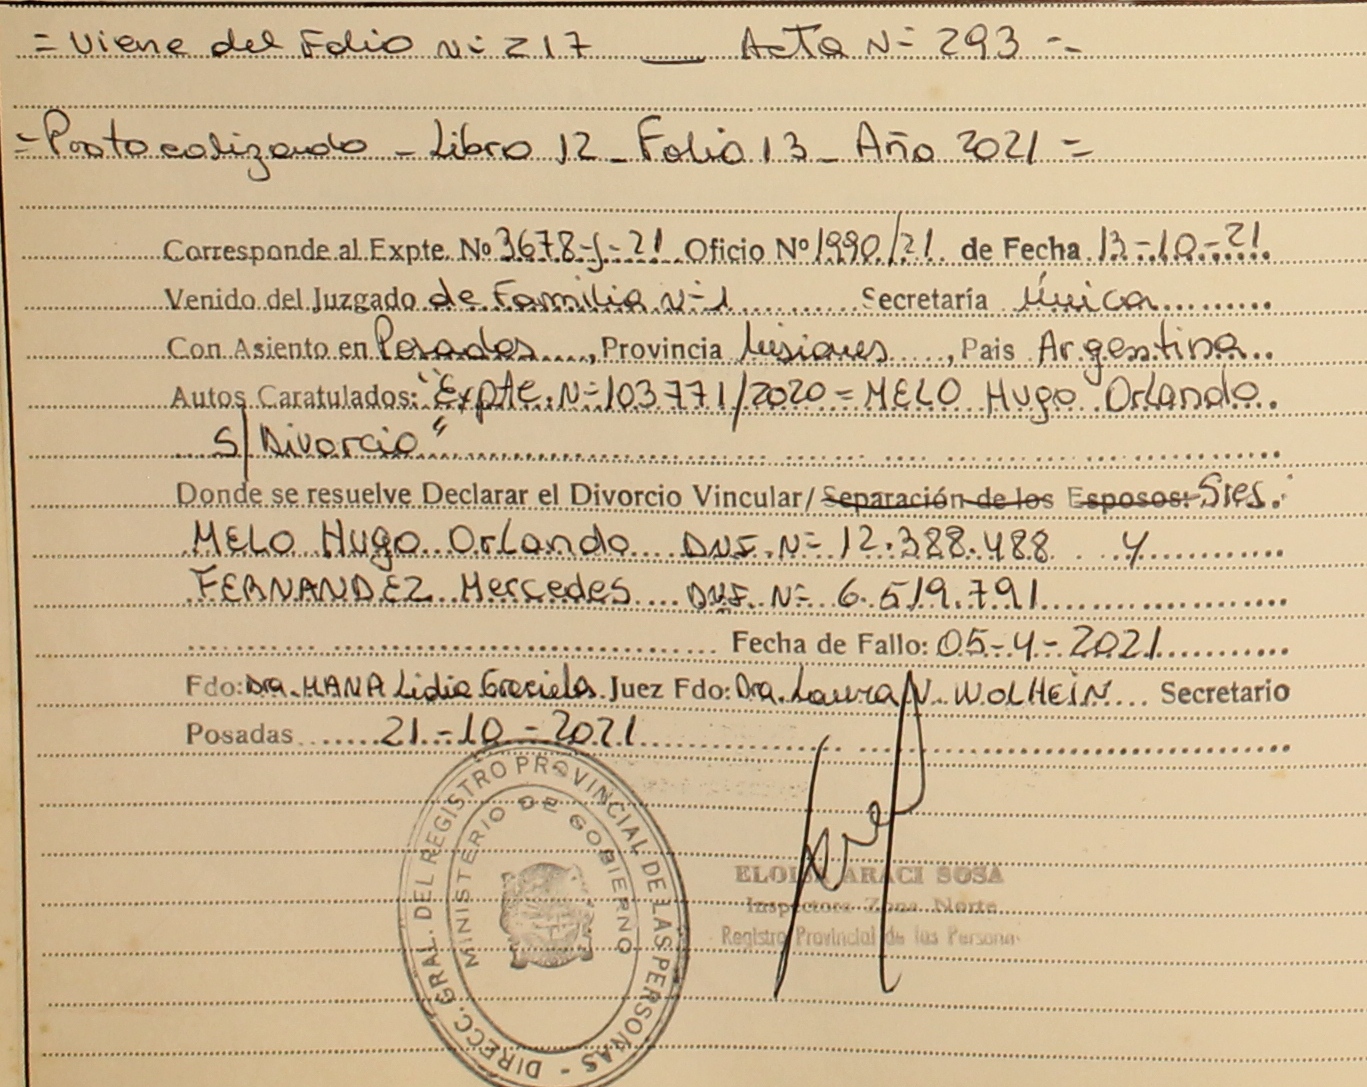 = Viene del Folio Nº 217 __ Acta Nº 293 =
= Protocolizando - Libro 12 - Folio 13 - Año 2021 =
Corresponde al Expte. Nº 3678-J-21 Oficio Nº 1990/21 de Fecha 13-10-21
Venido del Juzgado de Familia Nº 1 Secretaría Única
Con Asiento en Posadas, Provincia Misiones, Pais Argentina
Autos Caratulados: "Expte. Nº 103771/2020 = MELO Hugo Orlando
S/ Divorcio"
Donde se resuelve Declarar el Divorcio Vincular/ Separación de los Esposos: Sres.
MELO Hugo Orlando DNI. Nº 12.388.488 y
FERNANDEZ Mercedes DNI. Nº 6.519.791
Fecha de Fallo: 05-4-2021
Fdo: Dra. MANA Lidia Graciela Juez Fdo: Dra. Laura V. WOLHEIN Secretario
Posadas 21-10-2021
DIRECC. GRAL. DEL REGISTRO PROVINCIAL DE LAS PERSONAS -
MINISTERIO DE GOBIERNO
ELOISA ARACI SOSA
Inspectora Zona Norte
Registro Provincial de las Personas